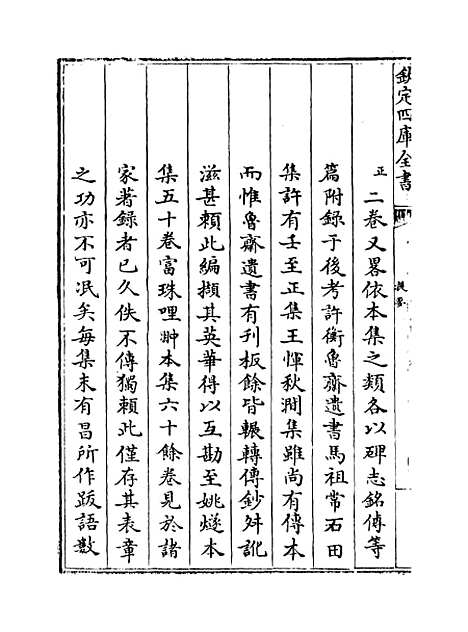 欽定四庫全書
提要
正二卷又畧依本集之類各以碑志銘傳等
篇附錄于後考許衡魯齋遺書馬祖常石田
集許有壬至正集王惲秋澗集雖尚有傳本
而惟魯齋遺書有刊板餘皆輾轉傳鈔舛訛
滋甚賴此編擷其英華得以互勘至姚燧本
集五十卷富珠哩翀本集六十餘卷見於諸
家著錄者已久佚不傳獨賴此僅存其表章
之功亦不可泯矣每集末有昌所作跋語數